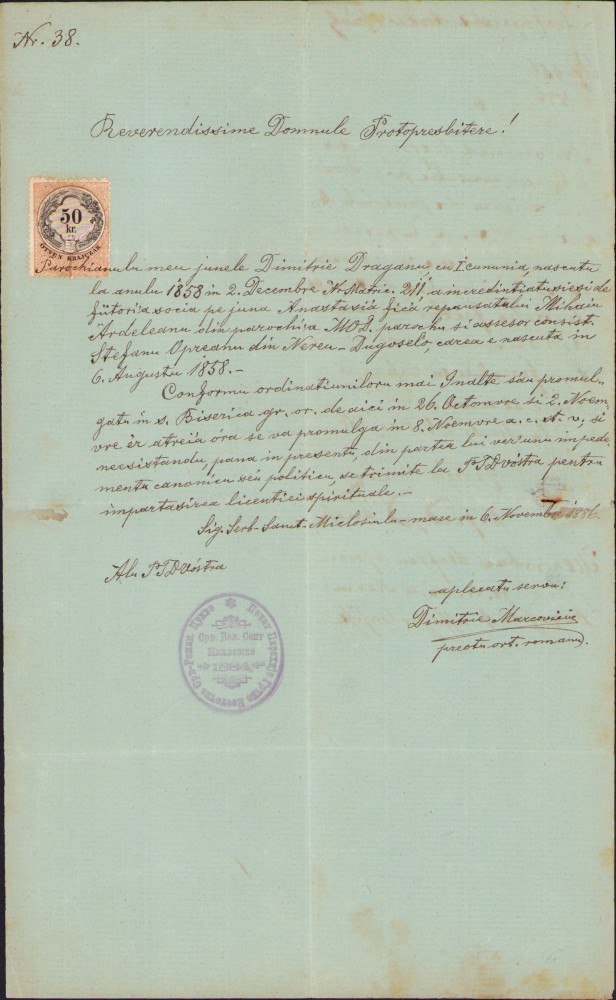 Nr. 38.
Reverendissime Domnule Protopresbitere!
50
kr.
ÖTVEN KRAJCZÁR
Parochianulu meu junele Dimitrie Draganu, cu I. cununia, nascutu
la anulu 1858 in 2. Decembre Nr. Matric. 211, a incredintiatu siesi de
fiitoria socia pe juna Anastasiă fică repausatului Mihaiu
Ardeleanu din parochi'a MOL. parochu si assessor consist.
Stefanu Opreanu din Nereu-Dugoselo, carea e nascuta in
6. Augustu 1858.-
Conformu ordinatiuniloru mai Inalte s'au promul-
gatu in s. Biserica gr. or. de aici in 26. Octomvre si 2. Noem-
vre ér atreia ora se va promulga in 8. Noemvre a. c. st. v; si
neesistandu, pana in presentu, din partea lui ver'unu impede-
mentu canonicu séu politicu, se trimite la PTDvóstra pentru
impartasirea licentiei spirituale.-
Sig. Serb-Sanct-Miclosiulu-mare in 6. Novembr 1886.
Alu PTDvóstra
aplecatu servu:
Dimitrie Marcoviciu
preotu ort. romanu.
Печат Парохіє Гръко Восточне Орѳ. Роман. Цркве
Срб. Вел. Сент
Миклошко